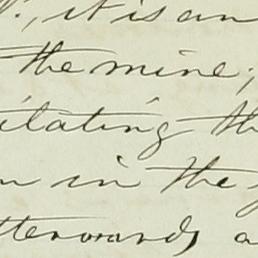 , it is an
the mine;
itating th
in the
tterwards a